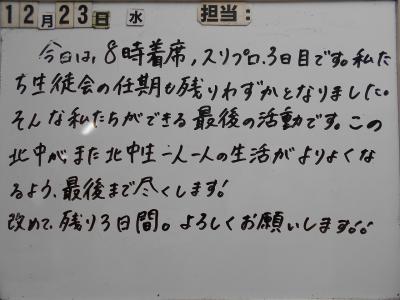 12月23日 水 担当:
今日は、8時着席、スリプロ、3日目です。私た
ち生徒会の任期も残りわずかとなりました。
そんな私たちができる最後の活動です。この
北中が、また北中生一人一人の生活がよりよくな
るよう、最後まで尽くします!
改めて、残り3日間。よろしくお願いします!!